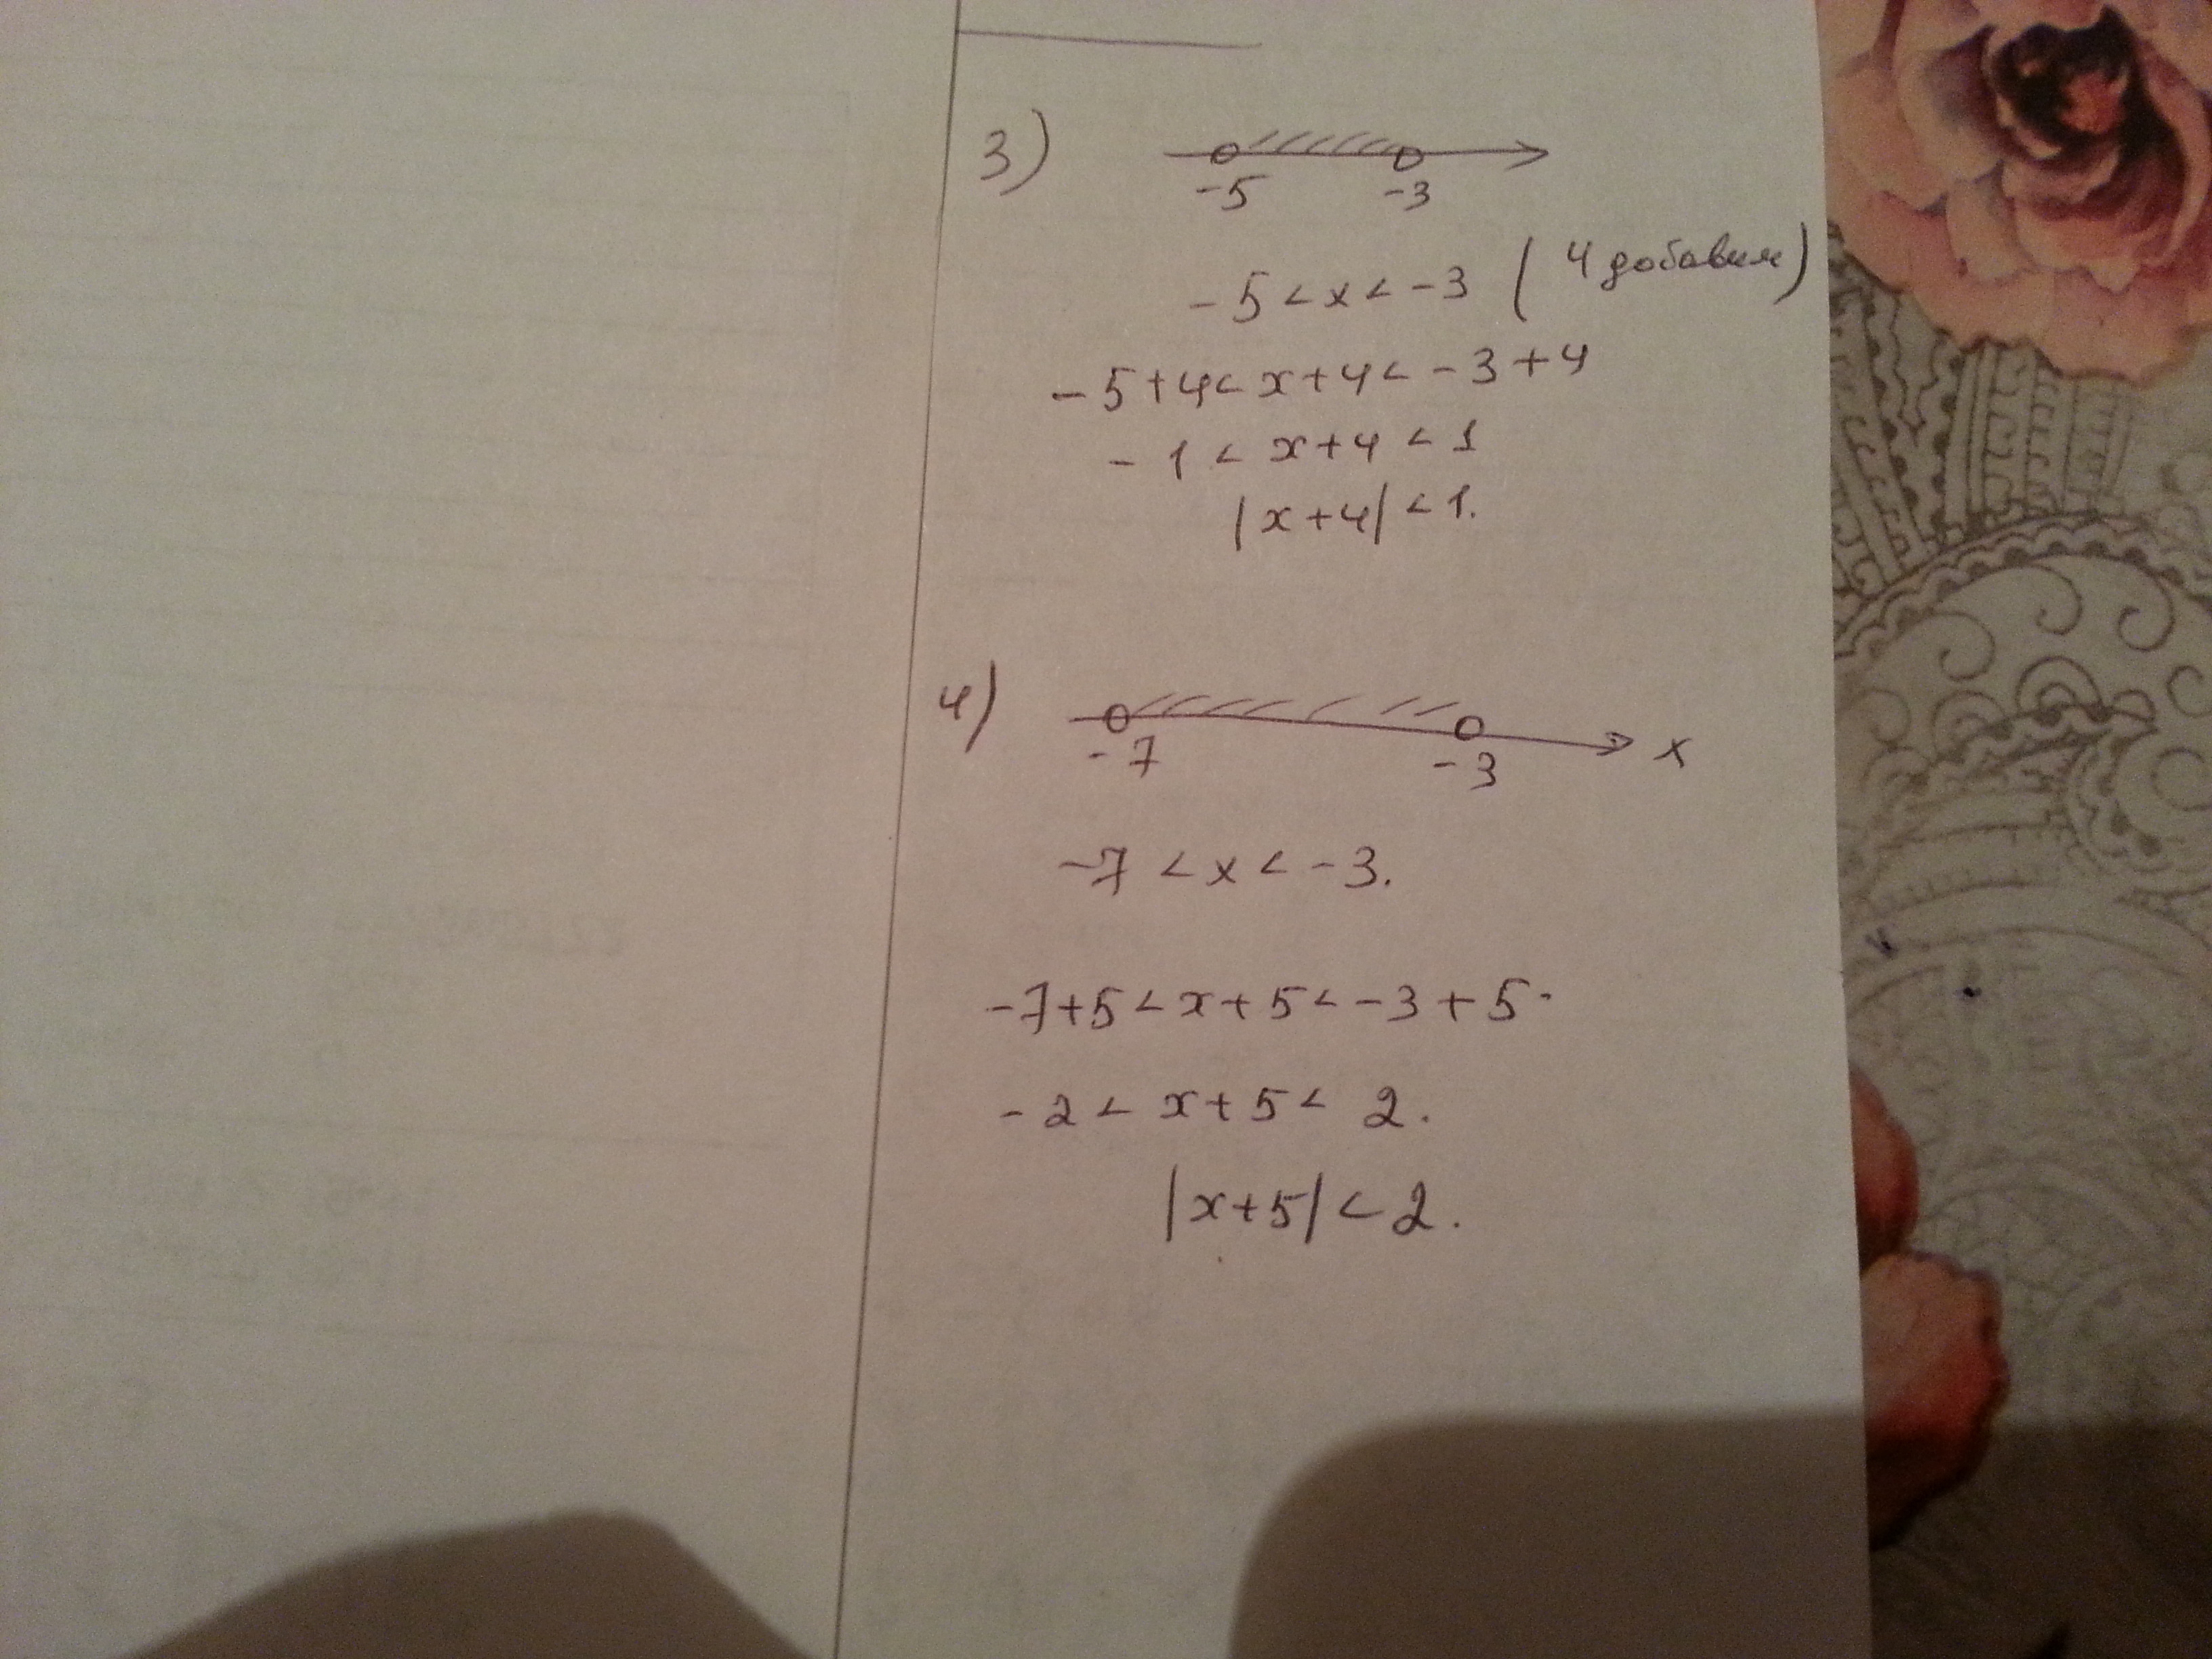 3)
-5 -3
-5 < x < -3 (4 добавим)
-5+4 < x+4 < -3+4
-1 < x+4 < 1
|x+4| < 1.
4)
-7 -3 x
-7 < x < -3.
-7+5 < x+5 < -3+5.
-2 < x+5 < 2.
|x+5| < 2.